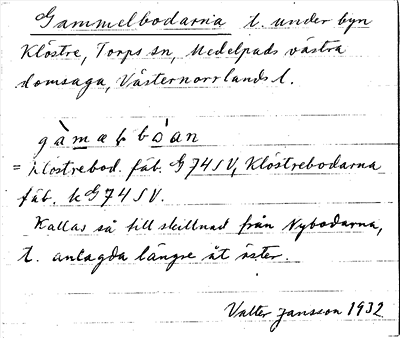 Gammelbodarna l. under byn
Klöstre, Torps sn, Medelpads västra
domsaga, Västernorrlands l.
gàmaɫbòan
= Klöstrebod. fäb. G74SV, Klöstrebodarna
fäb. k G74SV.
Kallas så till skillnad från Nybodarna,
l. anlagda längre åt öster.
Valter Jansson 1932